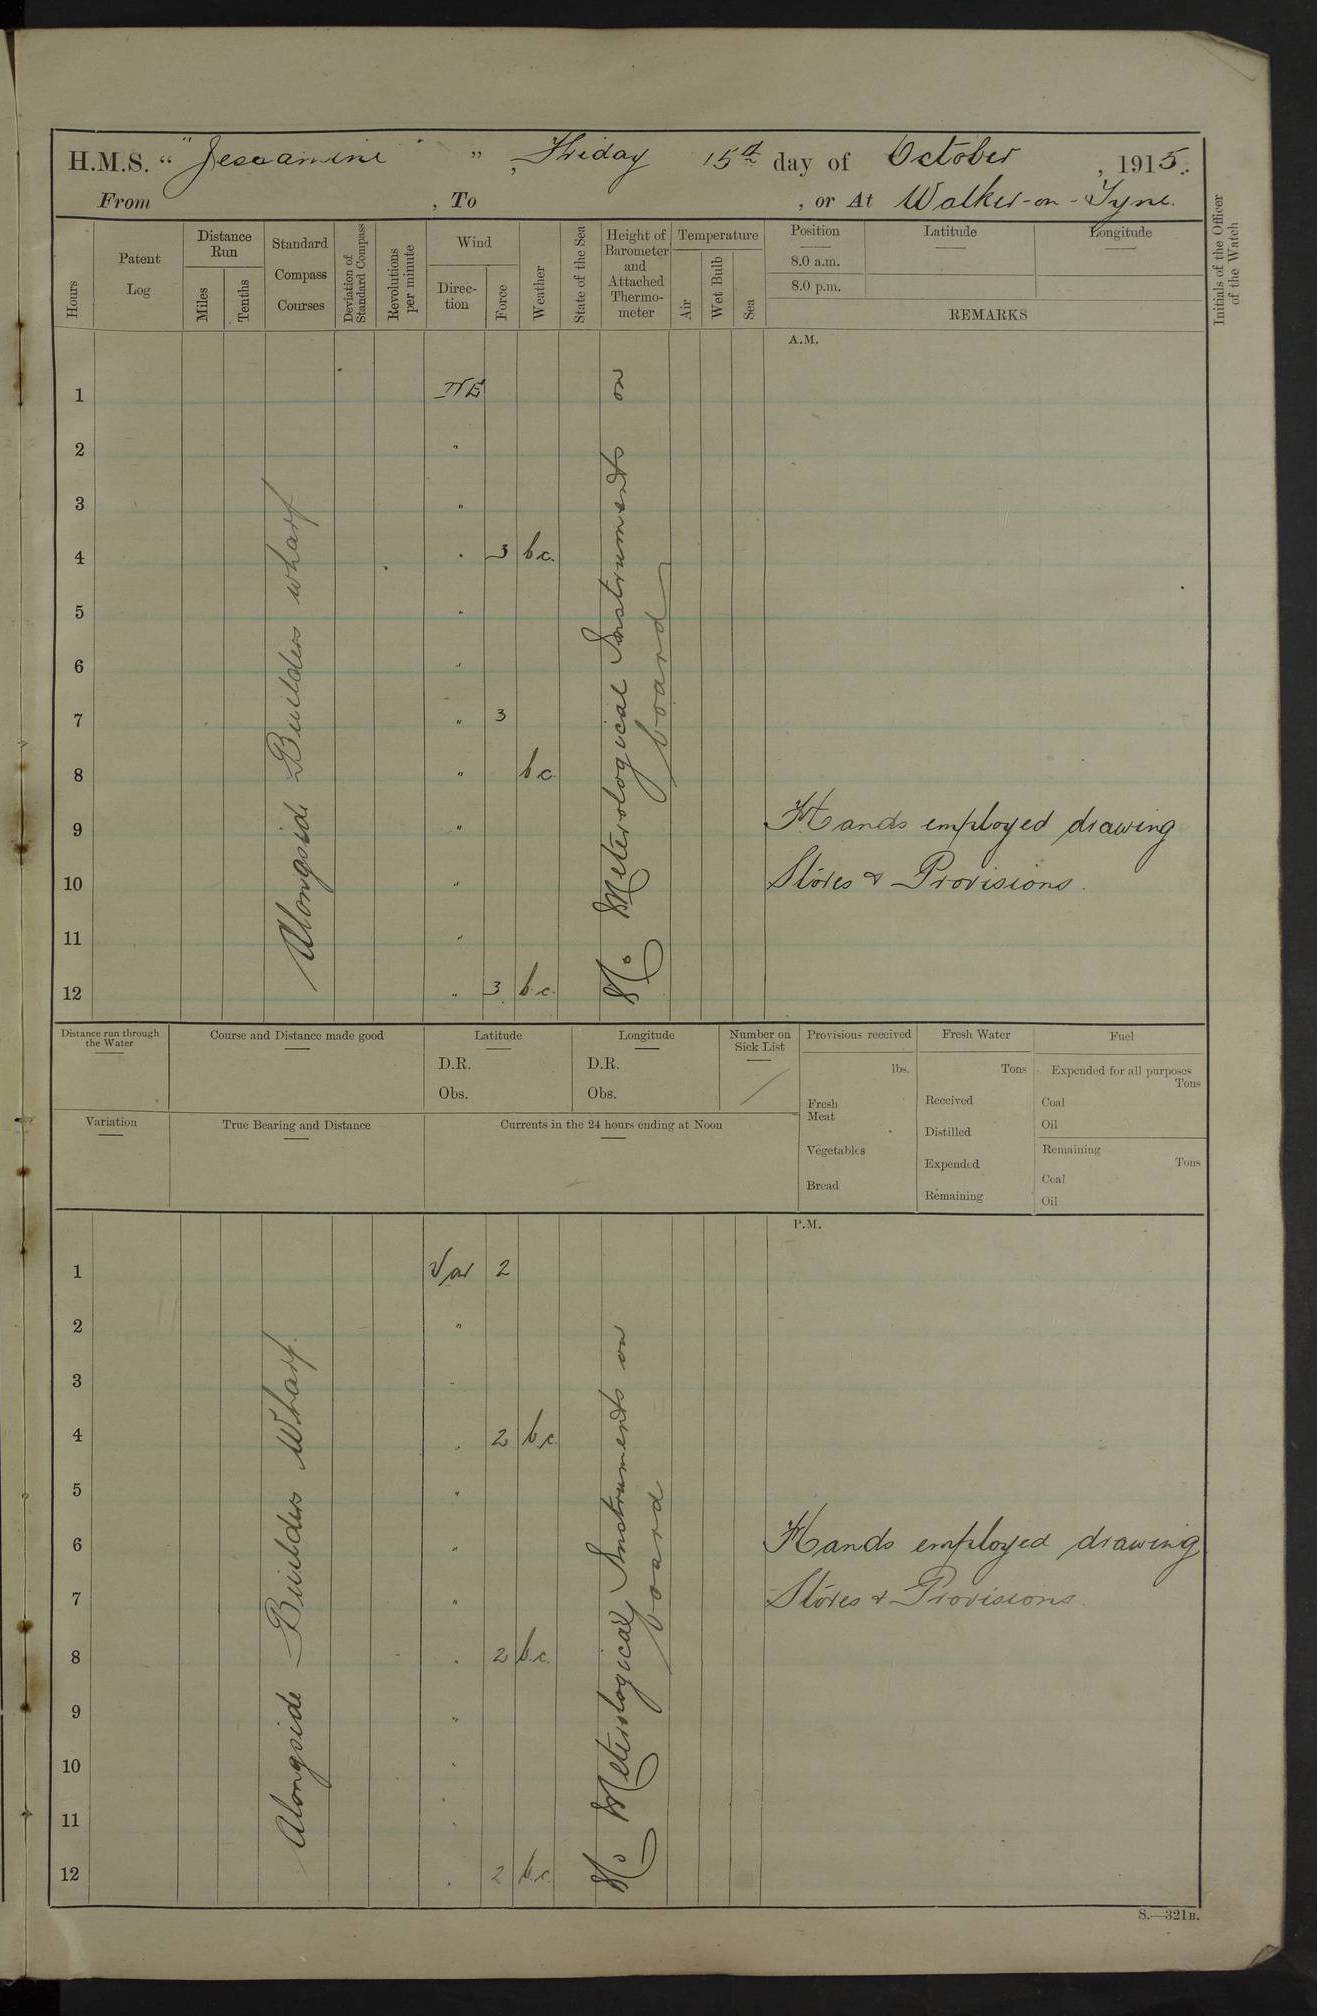 H.M.S. "Jessamine", Friday 15th day of October, 1915.
From , To , or At Walker-on-Tyne.
Hours
Patent Log
Distance Run
Miles
Tenths
Standard Compass Courses
Deviation of Standard Compass
Revolutions per minute
Wind
Direction
Force
Weather
State of the Sea
Height of Barometer and Attached Thermometer
Temperature
Air
Wet Bulb
Sea
Position
Latitude
Longitude
8.0 a.m.
8.0 p.m.
REMARKS
Initials of the Officer of the Watch
A.M.
Alongside Builders wharf
No Meterological Instruments on board
1 NE
2 "
3 "
4 " 3 b.c.
5 "
6 "
7 " 3
8 " b c
9 " Hands employed drawing
10 " Stores & Provisions.
11 "
12 " 3 b.c.
Distance run through the Water
Course and Distance made good
Latitude
D.R.
Obs.
Longitude
D.R.
Obs.
Number on Sick List
Provisions received
lbs.
Fresh Meat
Vegetables
Bread
Fresh Water
Tons
Received
Distilled
Expended
Remaining
Fuel
Expended for all purposes
Tons
Coal
Oil
Remaining
Tons
Coal
Oil
Variation
True Bearing and Distance
Currents in the 24 hours ending at Noon
P.M.
Alongside Builders Wharf.
No Meterological Instruments on board
1 Var 2
2 "
3 "
4 " 2 b.c.
5 "
6 " Hands employed drawing
7 " Stores & Provisions.
8 " 2 b.c.
9 "
10 "
11 "
12 " 2 b.c.
S.—321B.